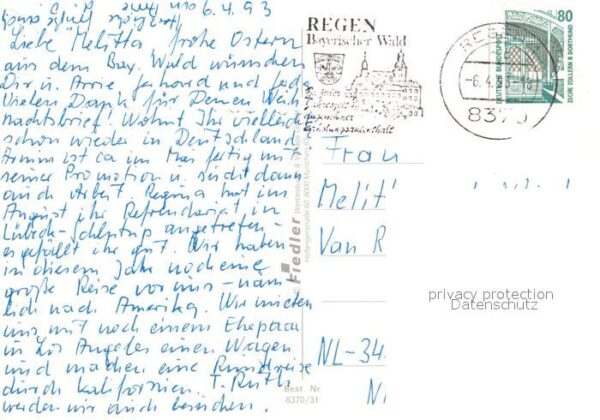 6.4.93
Liebe Melitta frohe Ostern
aus dem Bay. Wald wünschen
Dir u. Arrie
Vielen Dank für Deinen Weih
nachtsbrief! Wohnt Ihr vielleicht
schon wieder in Deutschland
Armin ist ca im Mai fertig mit
seiner Promotion u. sucht dann
auch Arbeit. Regina hat im
August ihr Referendariat in
Lübeck-Schlutup angetreten -
es gefällt ihr gut. Wir haben
in diesem Jahr noch eine
große Reise vor uns - näm
lich nach Amerika. Wir mieten
uns mit noch einem Ehepaar
in Los Angeles einen Wagen
und machen eine Rundreise
durch Kalifornien. T. Ruth
werden wir auch besuchen.
REGEN
Bayerischer Wald
REGEN
-6.4.
8370
80
DEUTSCHE BUNDESPOST
ZECHE ZOLLERN II DORTMUND
Fiedler
Best. Nr.
8370/31
Frau
Melit
Van R
NL-34
Ni
privacy protection
Datenschutz